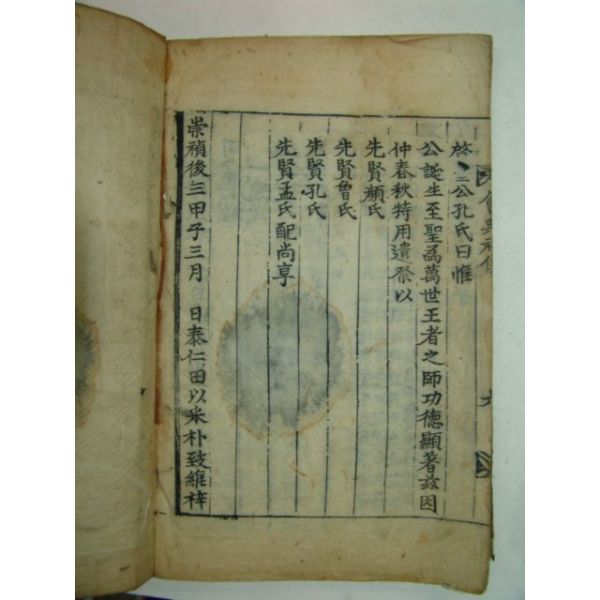 公孔氏曰惟
公誕生至聖爲萬世王者之師功德顯著茲因
仲春秋特用遣祭以
先賢顔氏
先賢曾氏
先賢孔氏
先賢孟氏配尚享
崇禎後三甲子三月 日泰仁田以采朴致維梓